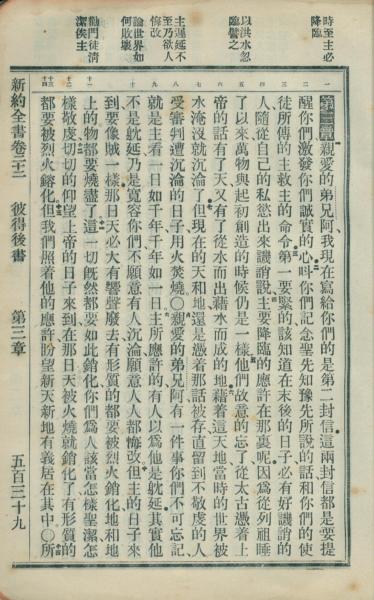 時至主必
降臨
以洪水忽
臨譬之
主遲延不
至乃欲人
悔改
論世如
何敗壞
勸門徒淸
潔俟主
一
二
三
四
五
六
七
八
九
十
十一
十二
十三
十四
第三章親愛的弟兄阿我現在寫給你們的是第二封信這兩封信都是要提
醒你們激發你們誠實的心呌你們記念聖先知豫先所說的話和你們的使
徒所傳的主救主的命令第一要緊的該知道在末後的日子必有好譏誚的
人隨從自己的私慾出來譏誚說主要降臨的應許在那裏呢因爲從列祖睡
了以來萬物與起初創造的時候仍是一樣他們故意的忘了從太古憑着上
帝的話有了天又有了從水而出藉水而成的地藉着這天地當時的世界被
水淹沒就沉淪了但現在的天和地還是憑着那話被存直留到不敬虔的人
受審判遭沉淪的日子用火焚燒〇親愛的弟兄阿有一件事你們不可忘記
就是主看一日如千年千年如一日主所應許的有人以爲他是躭延其實他
不是躭延乃是寬容你們不願意有人沉淪願意人人都悔改但主的日子來
到要像賊一樣那日天必大有響聲廢去有形質的都要被烈火銷化地和地
上的物都要燒盡了這一切旣然都要如此銷化你們爲人該當怎樣聖潔怎
樣敬虔切切的仰望上帝的日子來到在那日天被火燒就銷化了有形質的
都要被烈火鎔化但我們照着他的應許盼望新天新地有義居在其中〇所
新約全書卷二十二 彼得後書 第三章 五百三十九